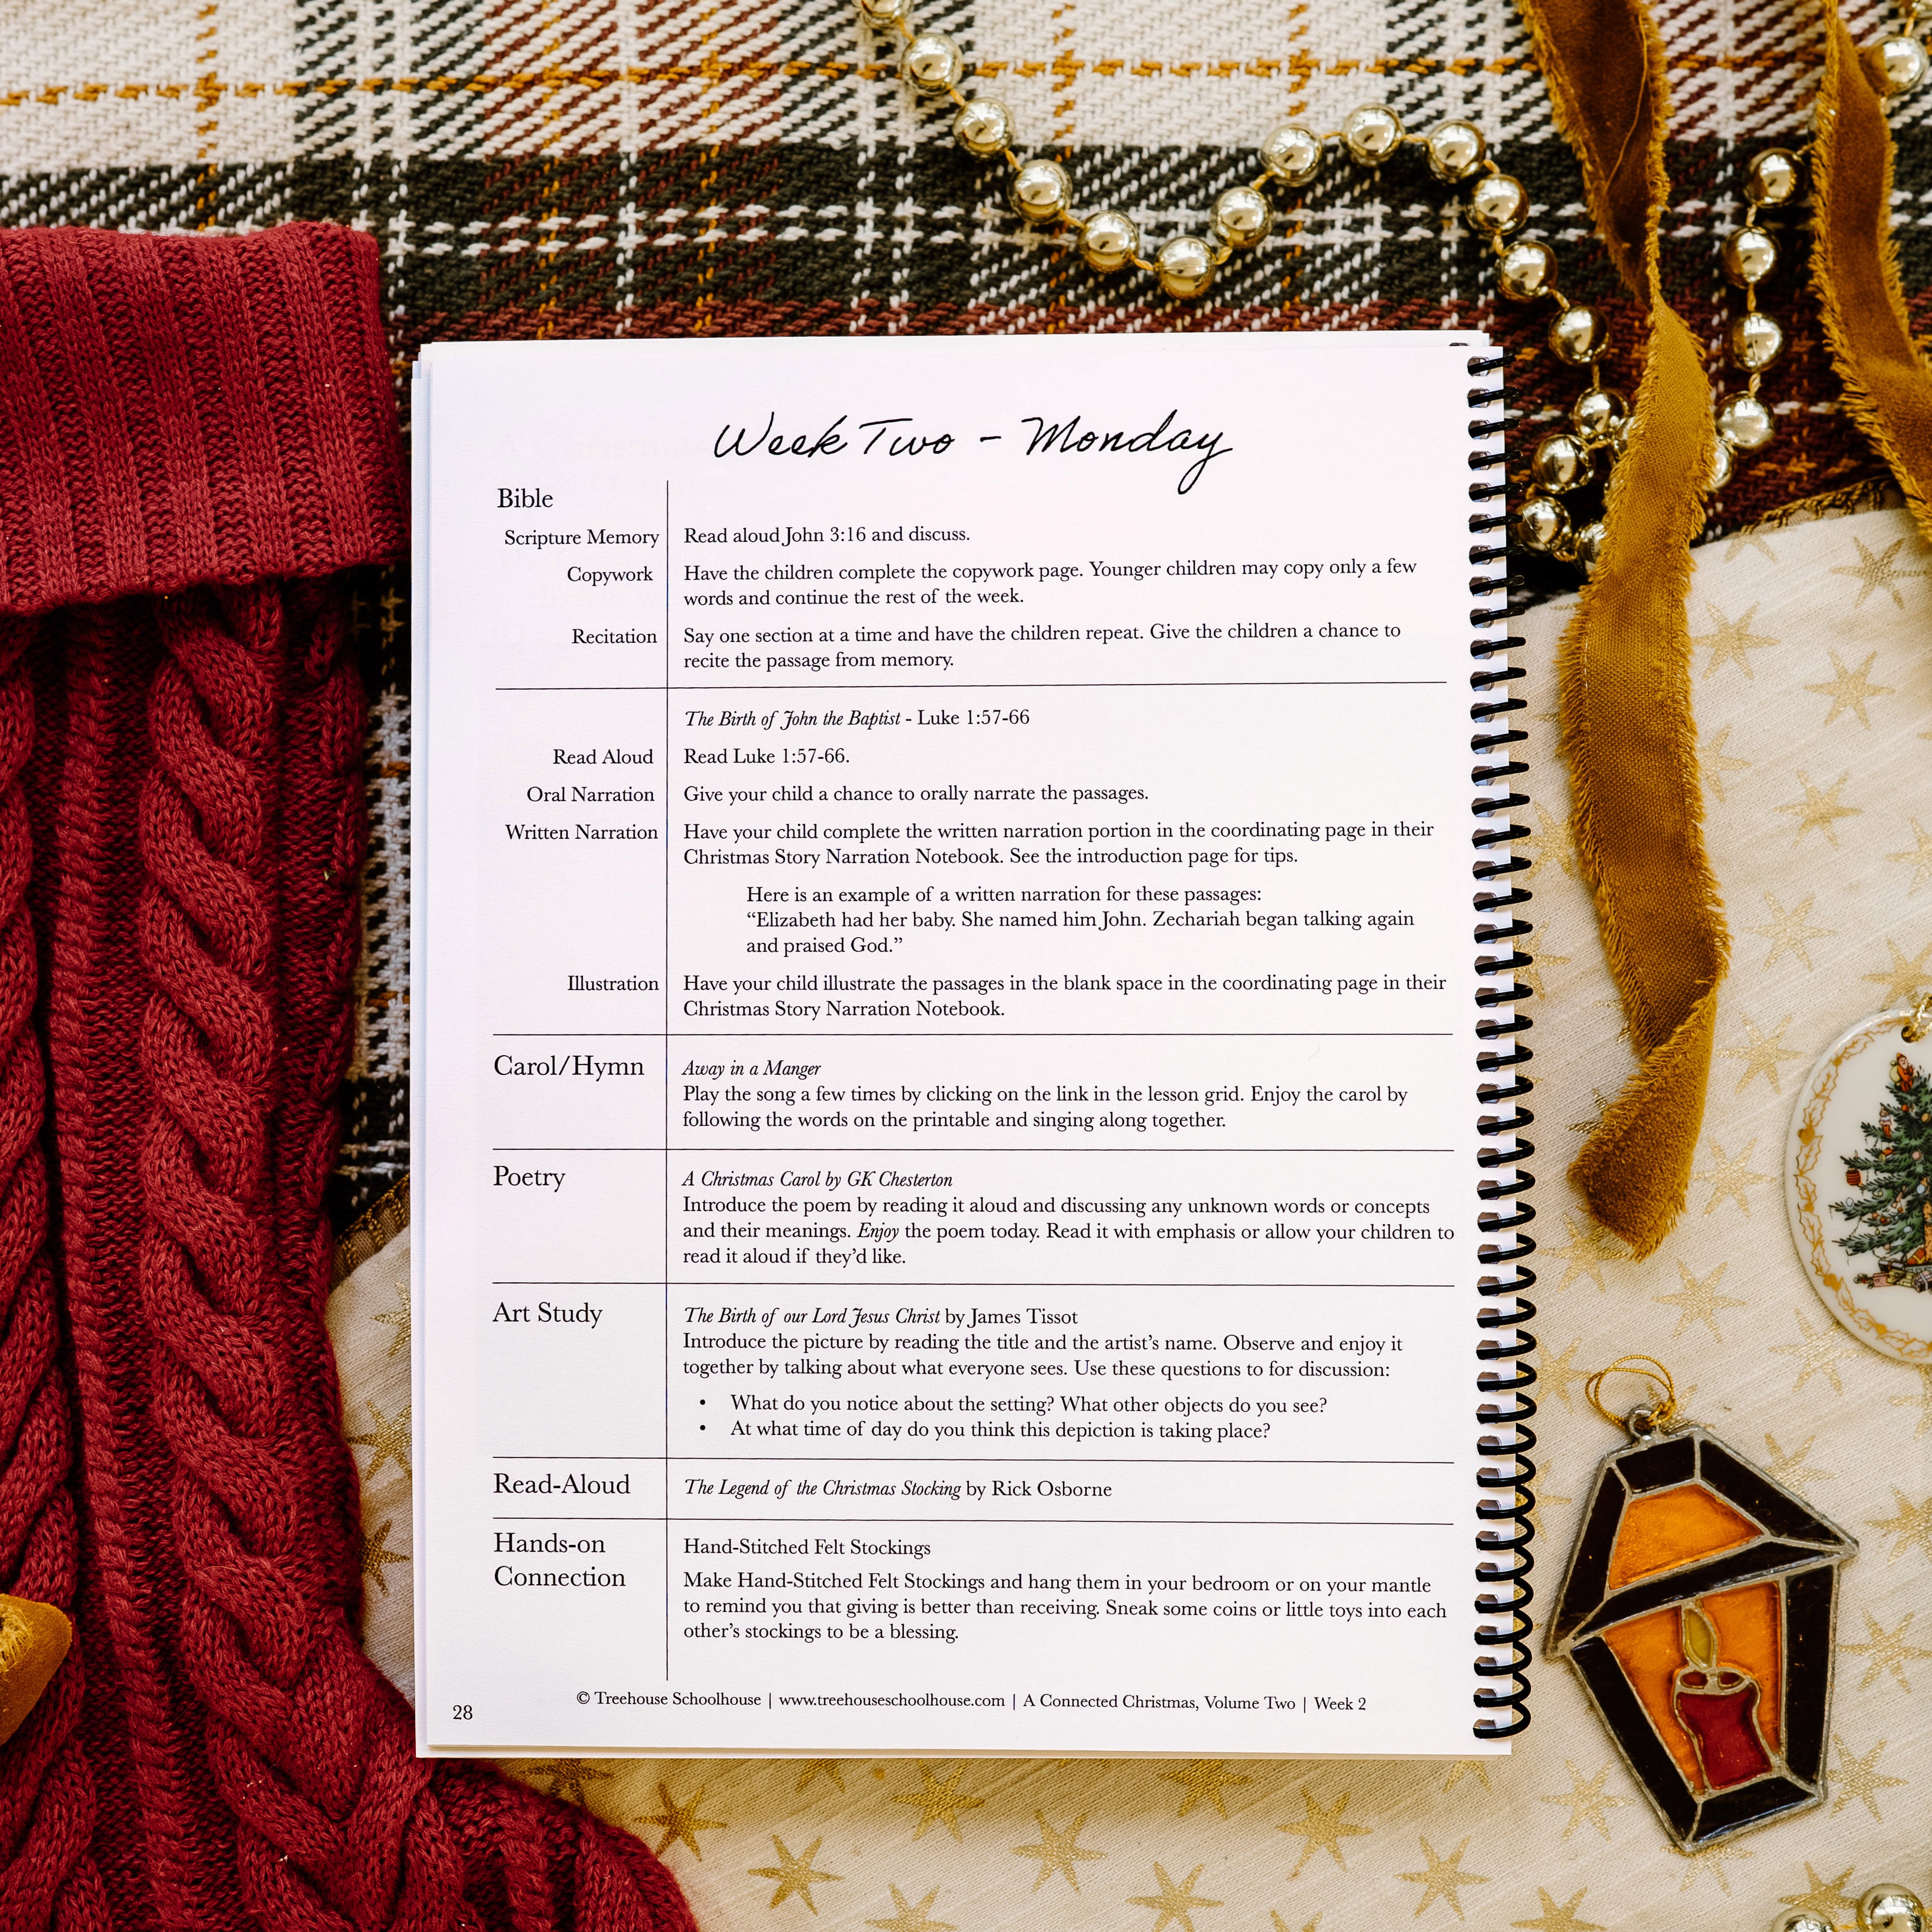 Week Two - Monday
Bible
Scripture Memory Read aloud John 3:16 and discuss.
Copywork Have the children complete the copywork page. Younger children may copy only a few
words and continue the rest of the week.
Recitation Say one section at a time and have the children repeat. Give the children a chance to
recite the passage from memory.
The Birth of John the Baptist - Luke 1:57-66
Read Aloud Read Luke 1:57-66.
Oral Narration Give your child a chance to orally narrate the passages.
Written Narration Have your child complete the written narration portion in the coordinating page in their
Christmas Story Narration Notebook. See the introduction page for tips.
Here is an example of a written narration for these passages:
“Elizabeth had her baby. She named him John. Zechariah began talking again
and praised God.”
Illustration Have your child illustrate the passages in the blank space in the coordinating page in their
Christmas Story Narration Notebook.
Carol/Hymn Away in a Manger
Play the song a few times by clicking on the link in the lesson grid. Enjoy the carol by
following the words on the printable and singing along together.
Poetry A Christmas Carol by GK Chesterton
Introduce the poem by reading it aloud and discussing any unknown words or concepts
and their meanings. Enjoy the poem today. Read it with emphasis or allow your children to
read it aloud if they’d like.
Art Study The Birth of our Lord Jesus Christ by James Tissot
Introduce the picture by reading the title and the artist’s name. Observe and enjoy it
together by talking about what everyone sees. Use these questions to for discussion:
• What do you notice about the setting? What other objects do you see?
• At what time of day do you think this depiction is taking place?
Read-Aloud The Legend of the Christmas Stocking by Rick Osborne
Hands-on Hand-Stitched Felt Stockings
Connection Make Hand-Stitched Felt Stockings and hang them in your bedroom or on your mantle
to remind you that giving is better than receiving. Sneak some coins or little toys into each
other’s stockings to be a blessing.
© Treehouse Schoolhouse | www.treehouseschoolhouse.com | A Connected Christmas, Volume Two | Week 2
28